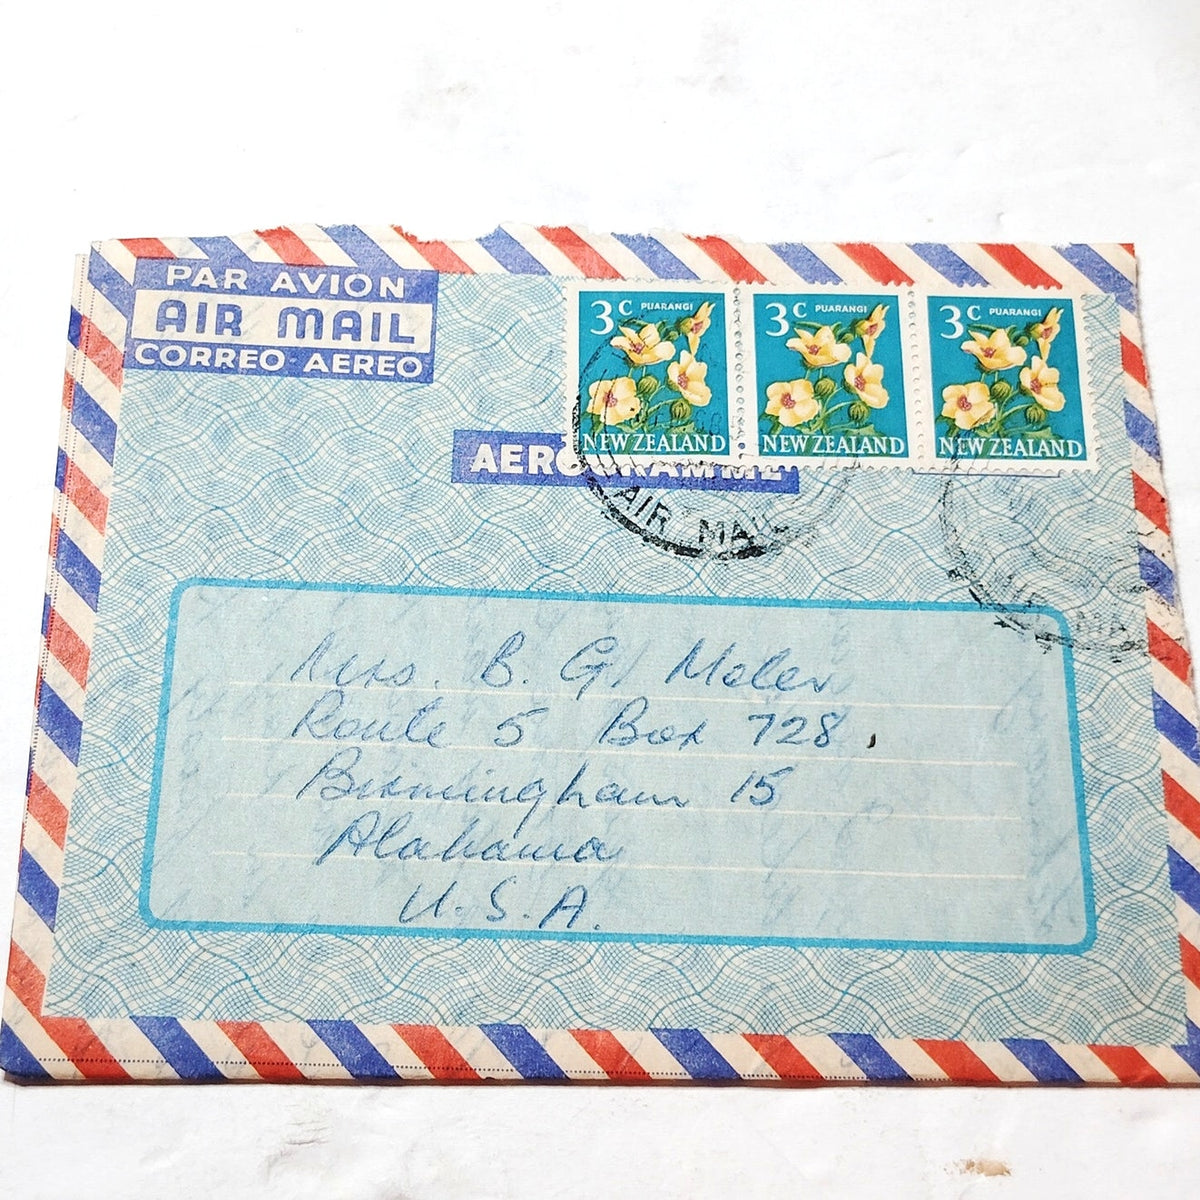 PAR AVION
AIR MAIL
CORREO AEREO
3c PUARANGI
NEW ZEALAND
3c PUARANGI
NEW ZEALAND
3c PUARANGI
NEW ZEALAND
AEROGRAMME
AIR MAIL
Mrs. B. G. Moler
Route 5 Box 728,
Birmingham 15
Alabama
U.S.A.